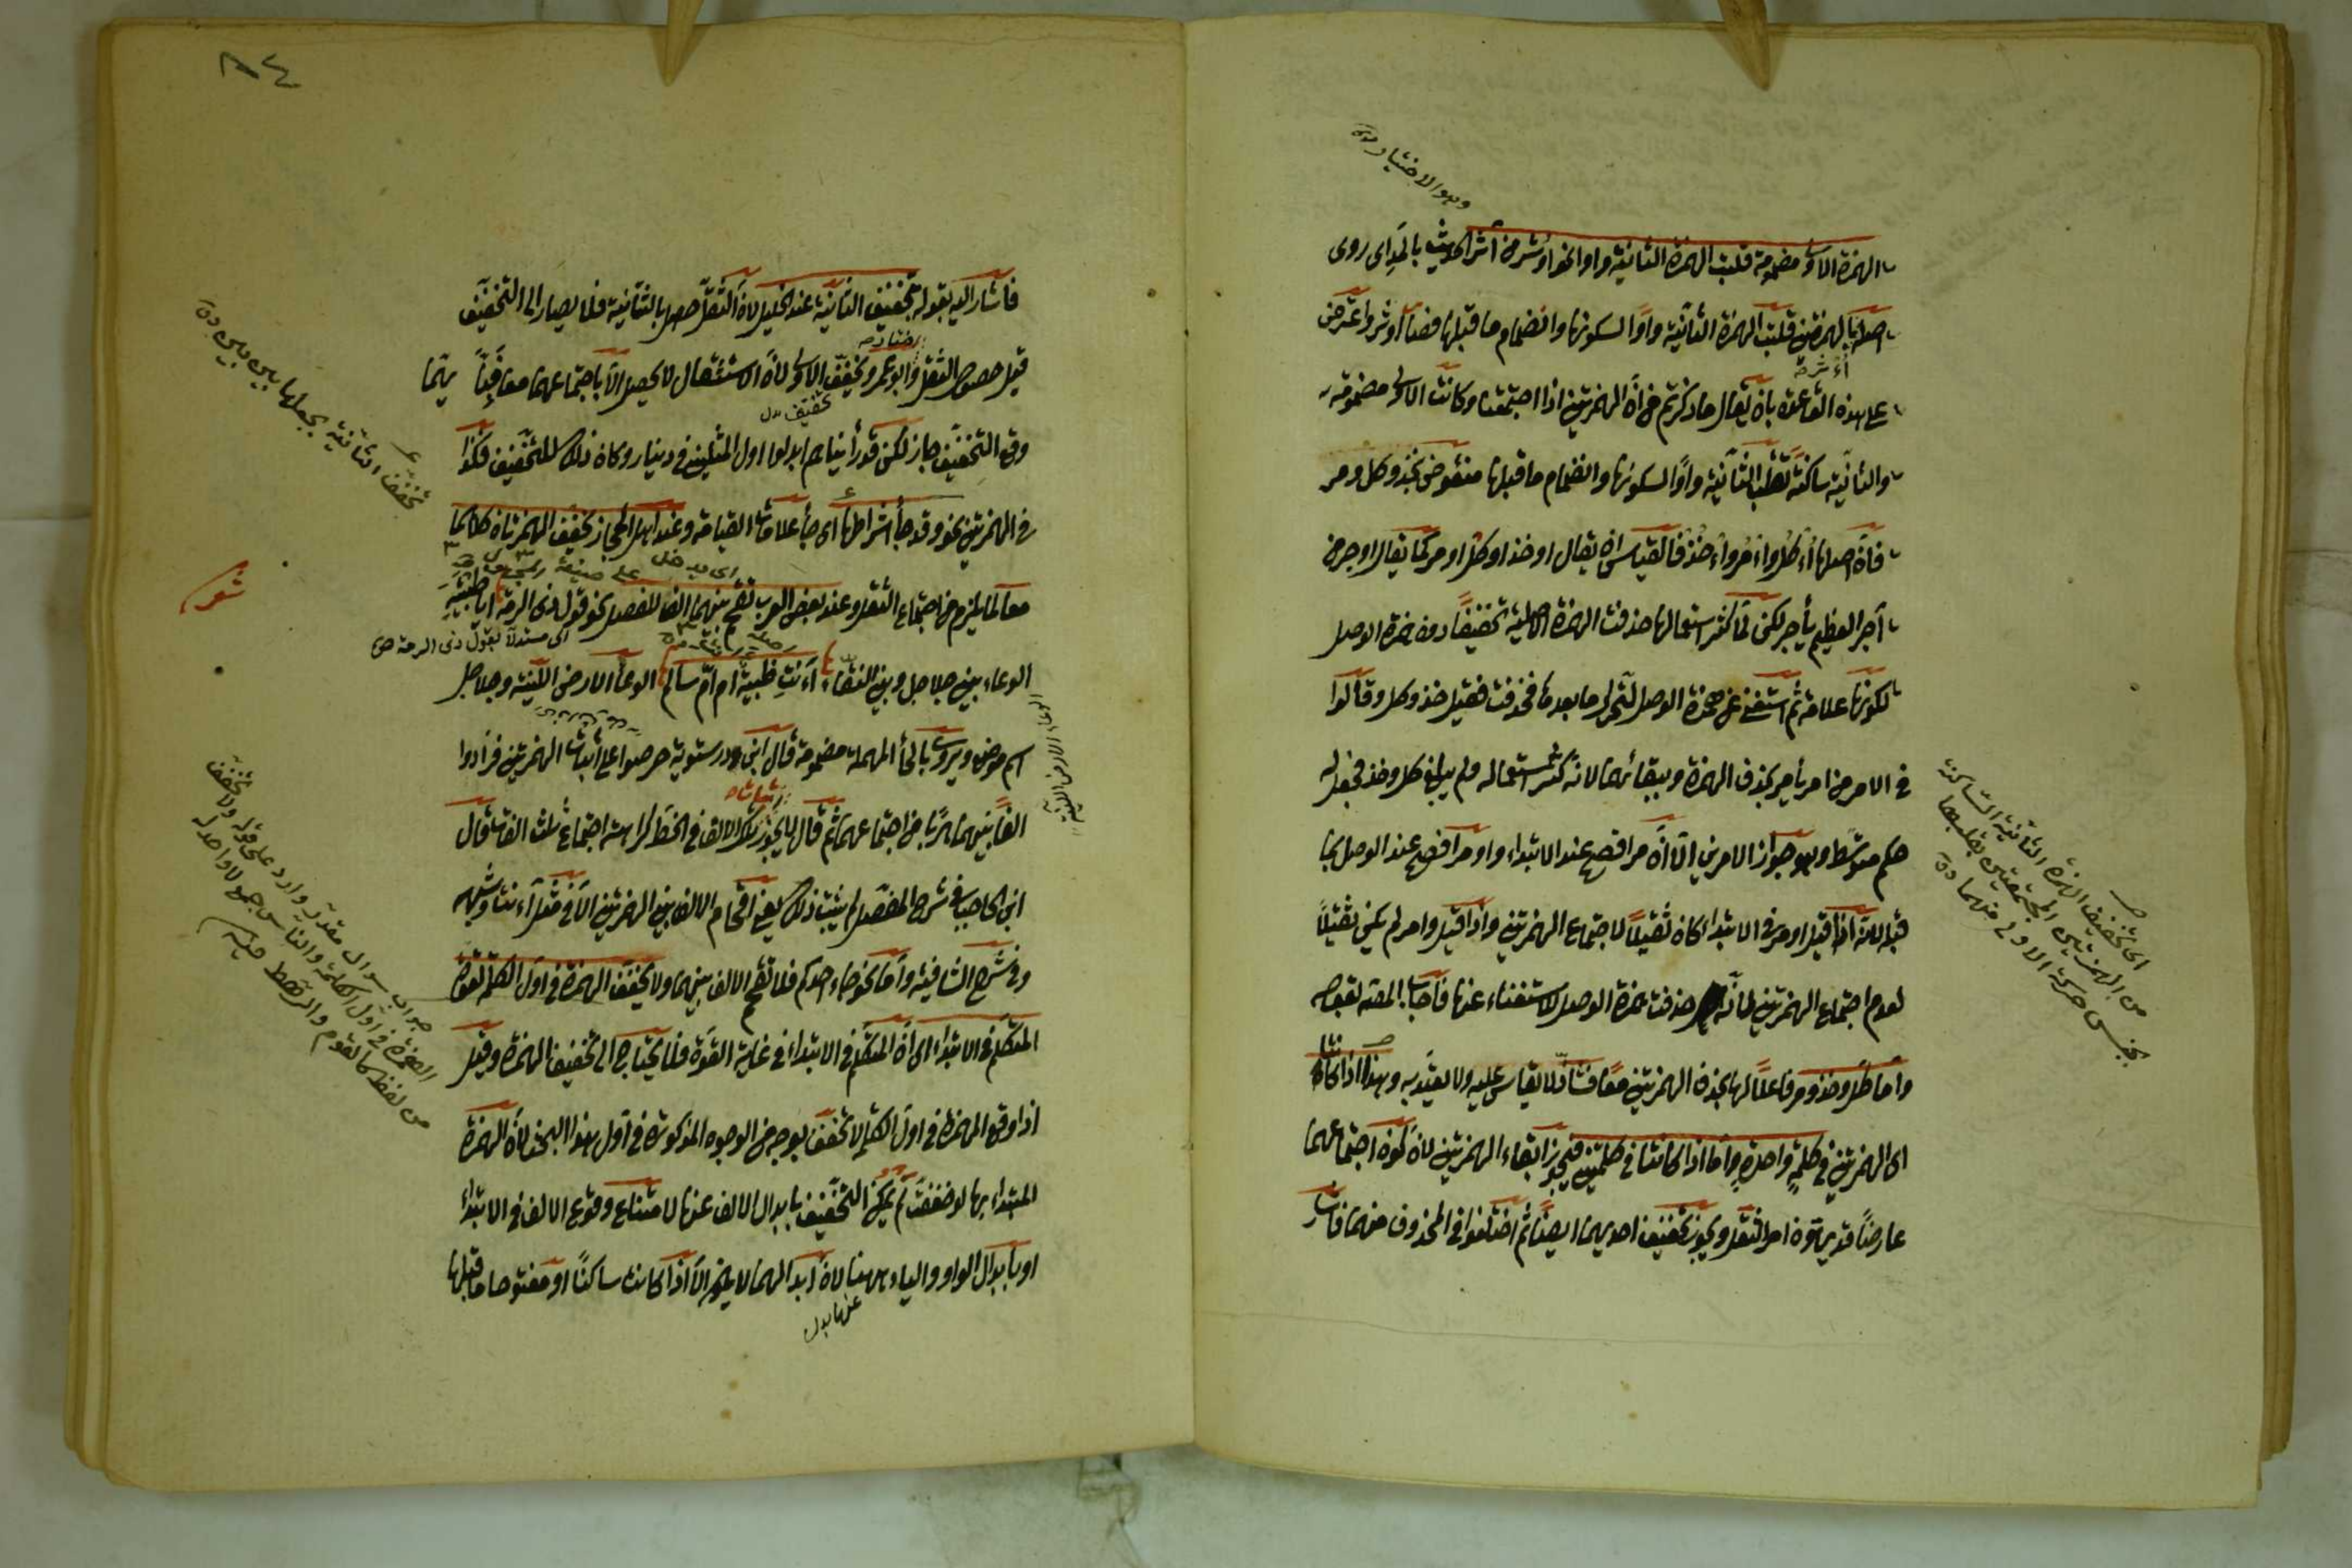 وهو الاختيار
الهمزة الاولى مضمومة قلبت الهمزة الثانية واوا نحو اوثر من آثر الحديث بالمد اى روى
اصله بالهمزتين قلبت الهمزة الثانية واوا لسكونها وانضمام ما قبلها فصار اوثر واعترض
على هذه القاعدة بان يقال ما ذكرتم من ان الهمزتين اذا اجتمعتا وكانت الاولى مضمومة
والثانية ساكنة تقلب الثانية واوا لسكونها وانضمام ما قبلها منقوض بخذ وكل ومر
فان اصلها اءكل واءمر واءخذ فالقياس ان يقال اوخذ اوكل اومر كما يقال اوجر من
آجر العظيم يأجر لكن لما كثر استعمالها حذفت الهمزة الاصلية تخفيفا دون همزة الوصل
لكونها علامة ثم استغنى عن همزة الوصل لتحرك ما بعدها فحذفت فقيل خذ وكل وقالوا
فى الامر من امر يأمر بحذف الهمزة وببقائها لانه كثر استعماله ولم يبلغ كل وخذ فجعل له
حكم متوسط وهو جواز الامرين الا ان مر افصح عند الابتداء واومر افصح عند الوصل بما
قبله لانه اذا قيل اومر فى الابتداء كان ثقيلا لاجتماع الهمزتين واذا قيل وامر لم يكن ثقيلا
لعدم اجتماع الهمزتين لانه حذفت همزة الوصل للاستغناء عنها فاجاب المص بقوله
واما كل وخذ ومر فاعلالها بحذف الهمزتين معا فشاذ لا يقاس عليه ولا يعتد به وهذا اذا كانتا
اى الهمزتين فى كلمة واحدة واما اذا كانتا فى كلمتين فيجوز ابقاء الهمزتين لان كون اجتماعهما
عارضا قد يهون امر الثقل ويجوز تخفيف احديهما ايضا ثم اختلفوا فى المحذوف منهما فاشار
اى تخفيف الهمزة الثانية الساكنة
من الهمزتين المجتمعتين بقلبها
بجنس حركة الاولى منهما
فاشار اليه بقوله تخفيف الثانية عند الخليل لان الثقل حصل بالثانية فلا يصار الى التخفيف
قبل حصول الثقل وابو عمرو يخفف الاولى لان الاستثقال لا يحصل الا باجتماعهما
وقع التخفيف جاز لكن قد رأيناهم ابدلوا اول المثلين فى دينار وكان ذلك للتخفيف فكذا
فى الهمزتين نحو وقد جاء اشراطها اى جاء علامات القيامة وعند اهل الحجاز تخفف الهمزتان كلتاهما
معا لما يلزم من اجتماع الثقل وعند بعض العرب تقحم بينهما الف للفصل نحو قول ذى الرمة ايا ظبية
اى مستدلا بقول ذى الرمة
الوعساء بين جلاجل وبين النقا ءآنت ظبية ام ام سالم الوعساء الارض اللينة وجلاجل
اسم موضع ويروى بالحاء المهملة مضمومة قال ابن درستويه حرصوا على اثبات الهمزتين فزادوا
الفا بينهما هربا من اجتماعهما ثم قال لا يجوز الالف فى الخط كراهة اجتماع ثلث الفات قال
ابن الحاجب فى شرح المفصل لم يثبت ذلك يعنى اقحام الالف بين الهمزتين الا فى مثل آءنت وشبهه
وفى شرح الشافية واما نحو جاء احدكم فلا تقحم الالف بينهما ولا تخفف الهمزة فى اول الكلمة لقوة
المتكلم فى الابتداء اى ان المتكلم فى الابتداء فى غاية القوة فلا يحتاج الى تخفيف الهمزة وقيل
اذا وقع الهمزة فى اول الكلمة لا تخفف بوجه من الوجوه المذكورة فى اول هذا البحث لان الهمزة
المبتداء بها لو خففت لم يمكن التخفيف بابدال الالف عنها لامتناع وقوع الالف فى الابتداء
او بابدال الواو والياء عنها لان ابدالهما لا يلزم الا اذا كانت ساكنا او مفتوحا ما قبلها
تخفف الثانية بجعلها بين بين
شعر
جواب سوال مقدر وارد على قوله ولا تخفف
الهمزة فى اول الكلمة
من لفظ كالقوم والرهط